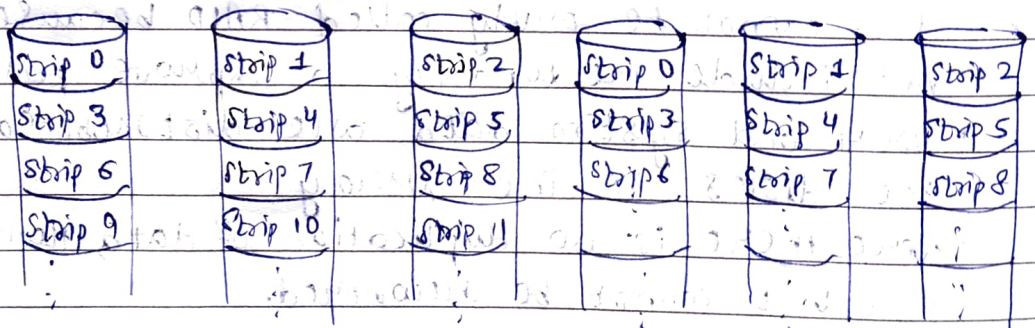 Strip 0 Strip 1 Strip 2 Strip 0 Strip 1 Strip 2
Strip 3 Strip 4 Strip 5 Strip 3 Strip 4 Strip 5
Strip 6 Strip 7 Strip 8 Strip 6 Strip 7 Strip 8
Strip 9 Strip 10 Strip 11